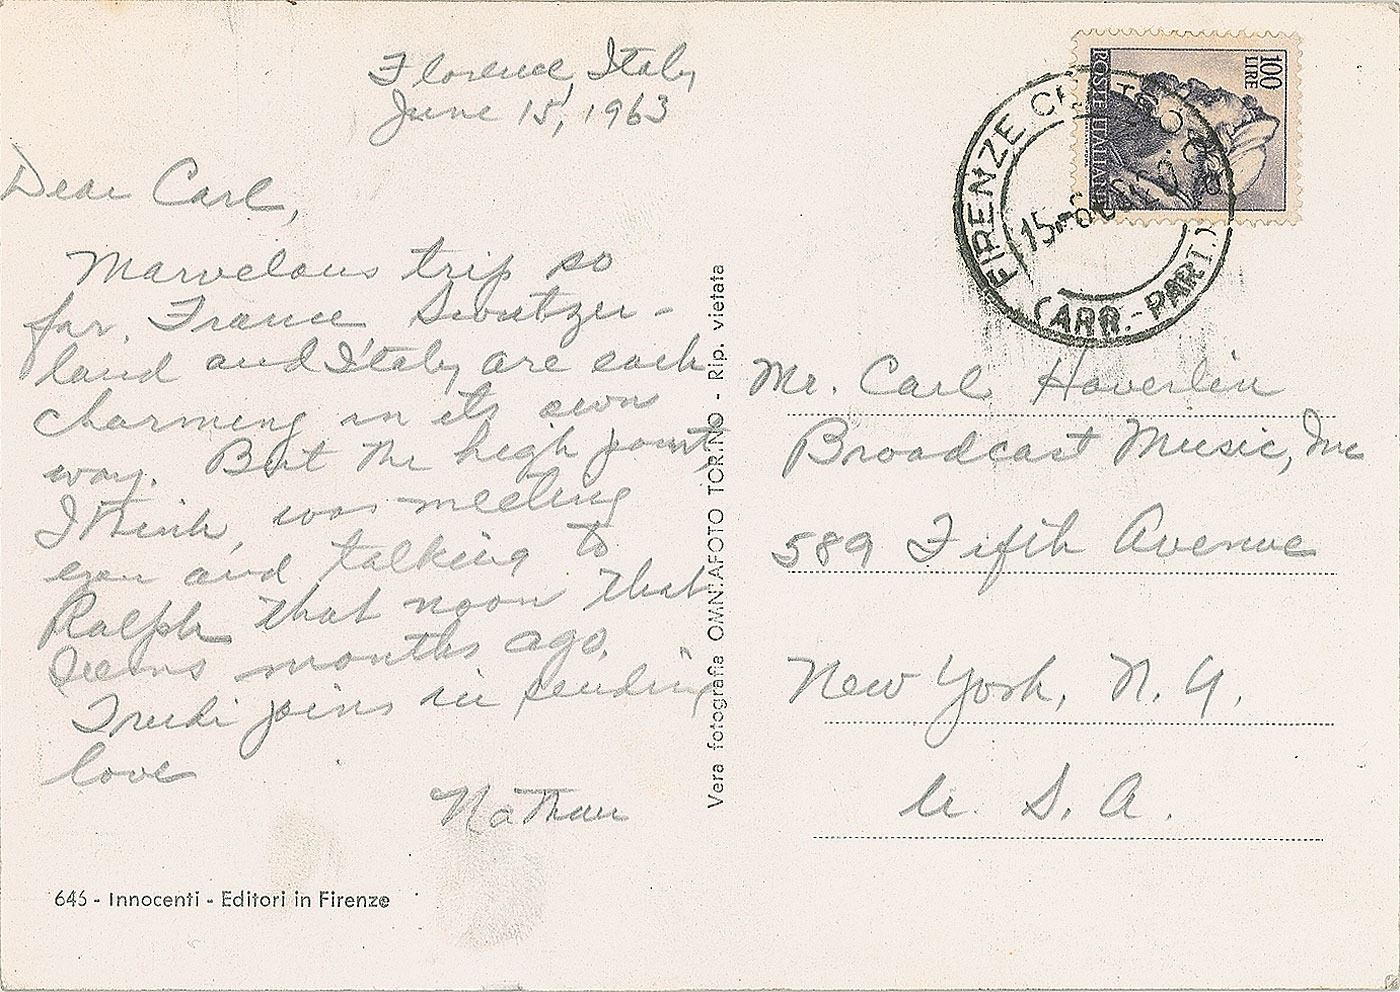 Florence, Italy
June 15, 1963
Dear Carl,
Marvelous trip so
far. France Switzer-
land and Italy are each
charming in its own
way. But the high point,
I think, was meeting
and talking to
Ralph that noon that
seems months ago.
Trudi joins in sending
love
Nathan
645 - Innocenti - Editori in Firenze
Vera fotografia OMNIAFOTO TORINO - Rip. vietata
100
LIRE
POSTE ITALIANE
FIRENZE
(ARR.-PART.)
15-6
Mr. Carl Haverlin
Broadcast Music, Inc
589 Fifth Avenue
New York, N.Y.
U. S. A.